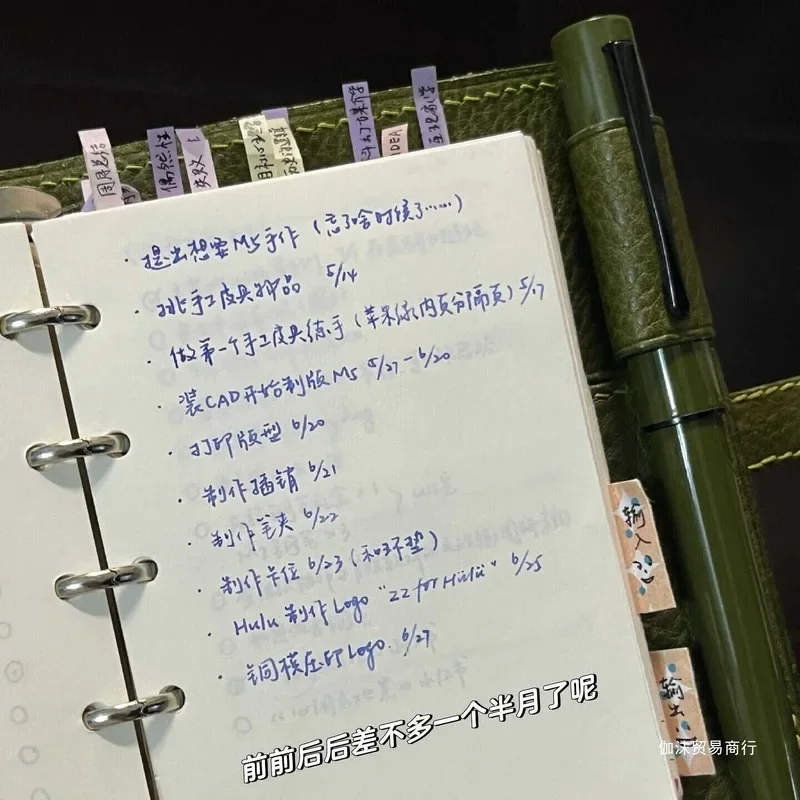 周月总结
偶然性
失败
IDEA
· 提出想要M5手作（忘了啥时候了……）
· 挑手工皮具样品 5/14
· 做第一个手工皮具练手（苹果绿内页分隔页）5/17
· 装CAD开始制版M5 5/27-6/20
· 打印版型 6/20
· 制作插销 6/21
· 制作笔夹 6/22
· 制作卡位 6/23（和环垫）
· Hulu 制作Logo “ZZ for Hulu” 6/25
· 铜模压印Logo. 6/27
输入
输出
前前后后差不多一个半月了呢
伽沫贸易商行